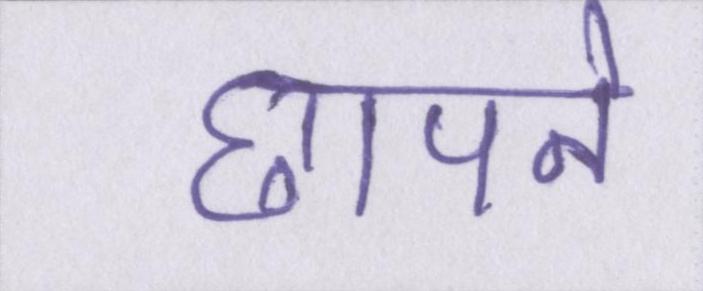 छापने